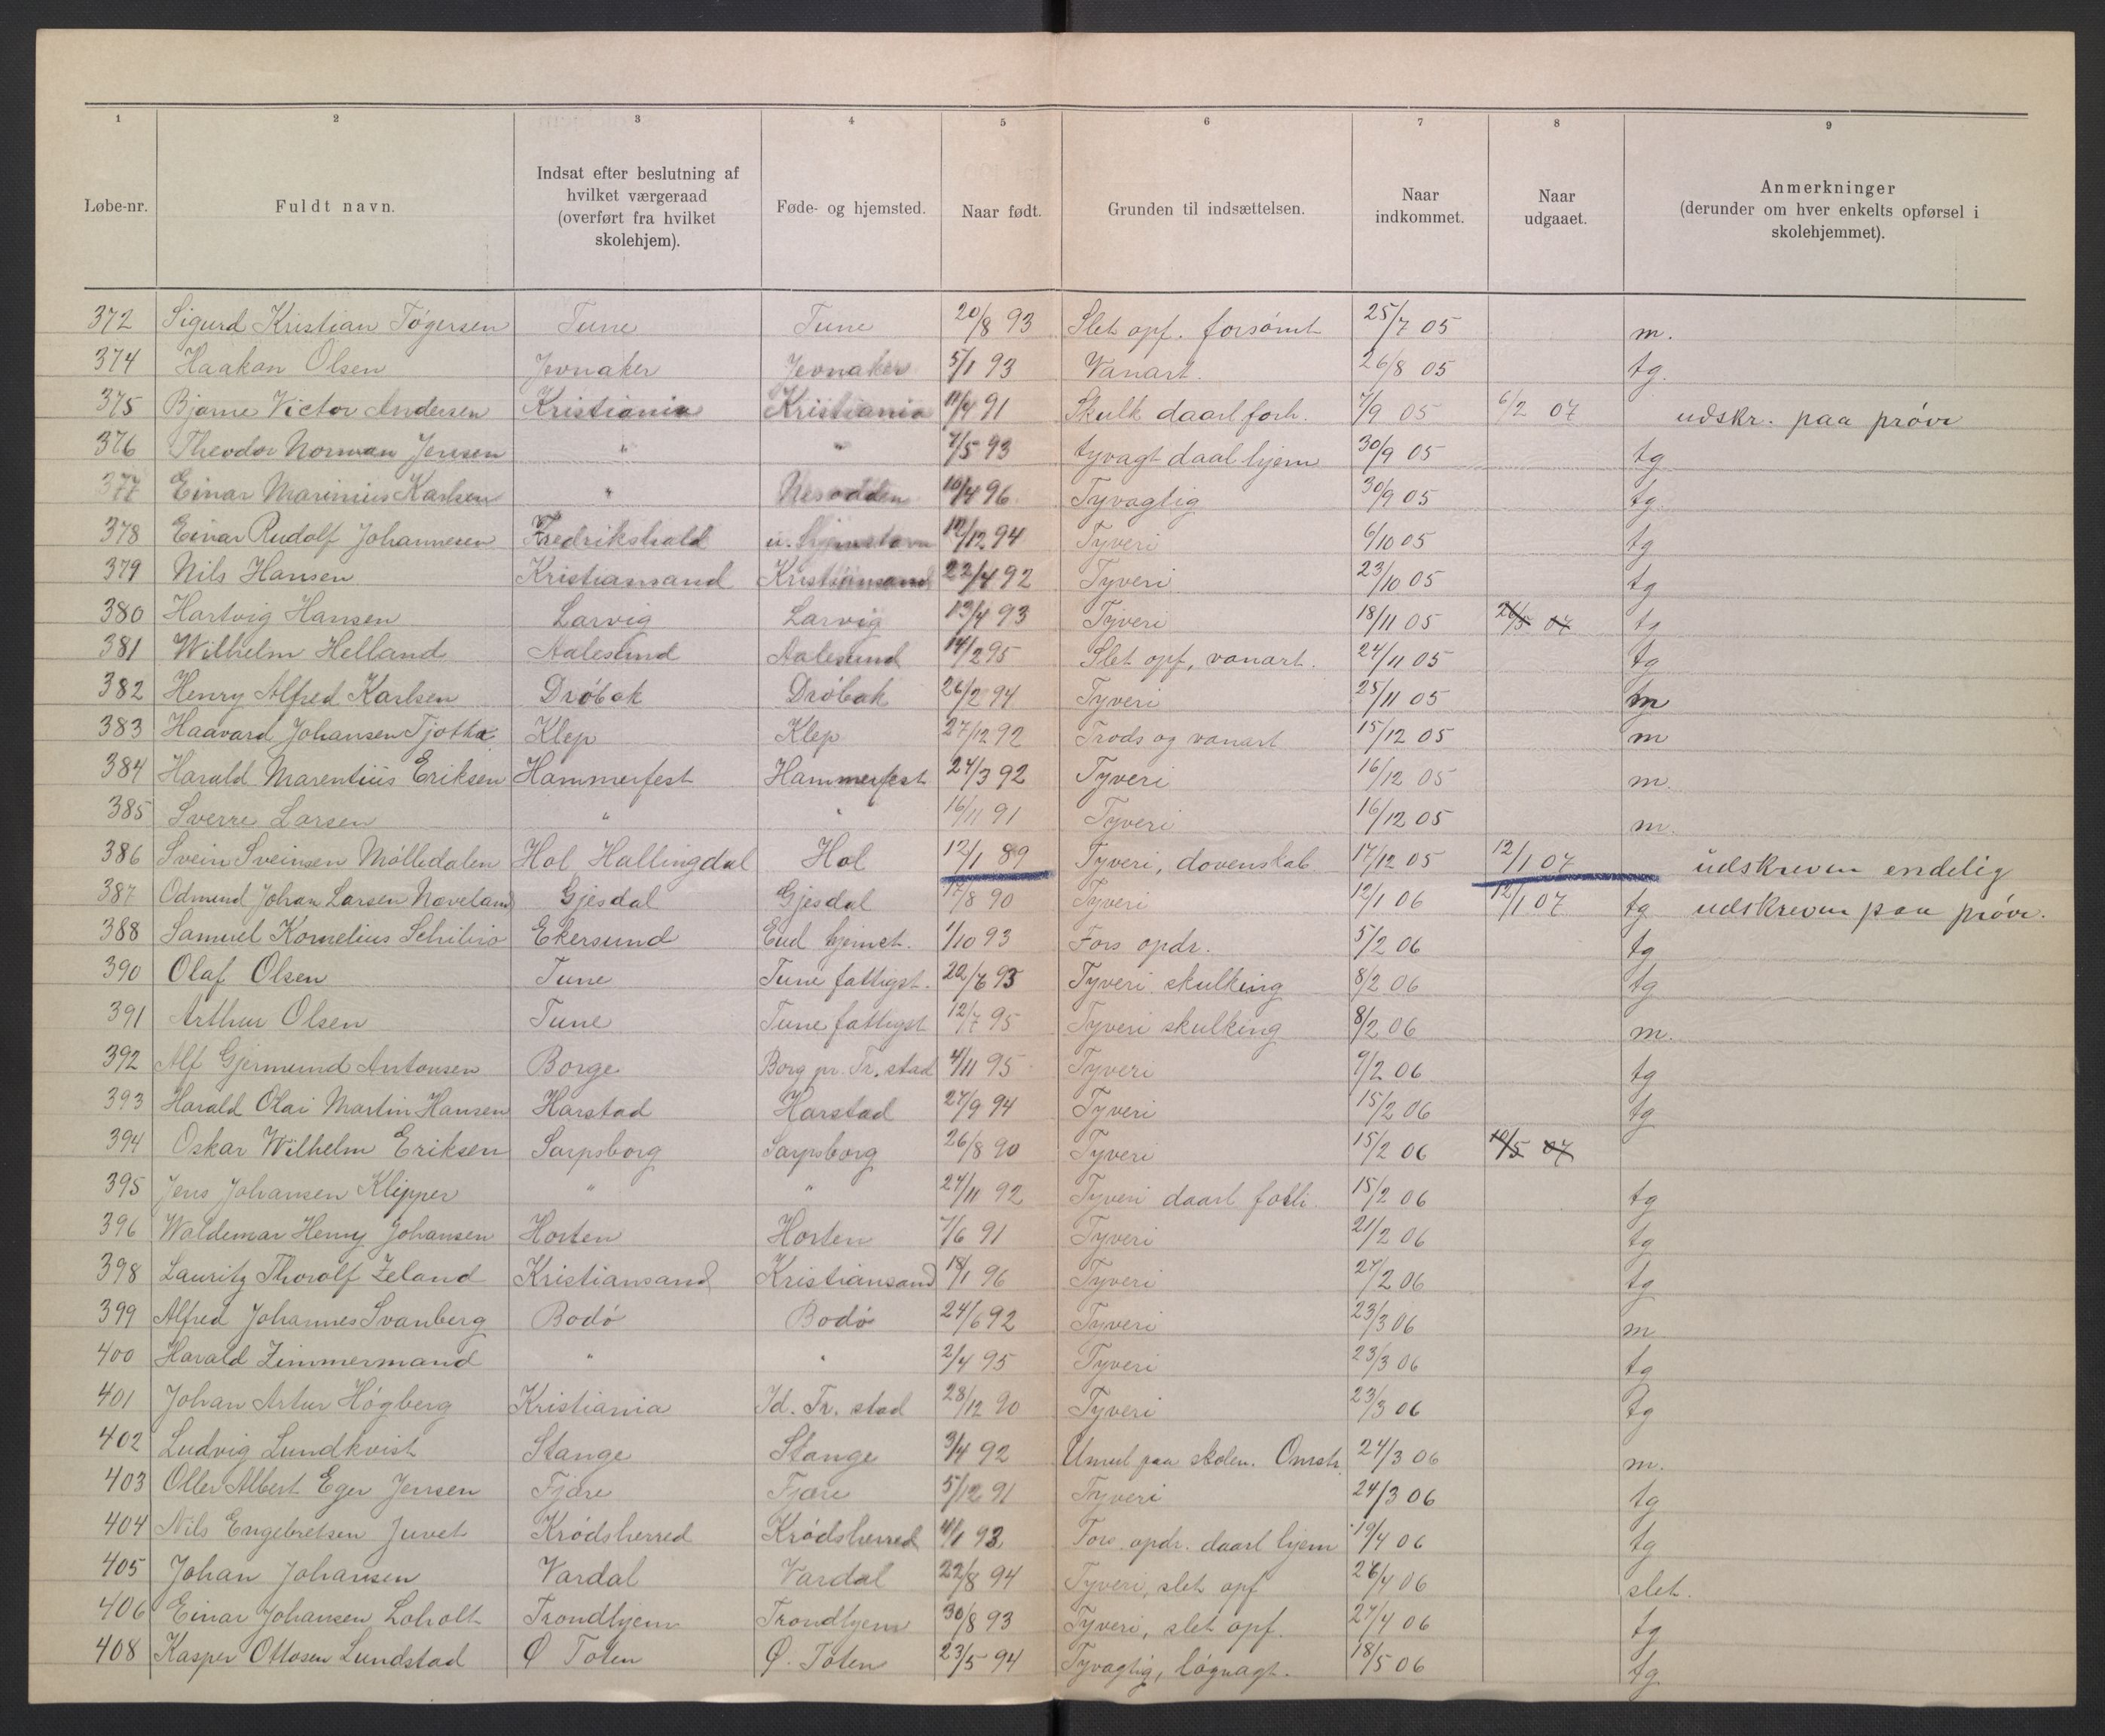 1 2 3 4 5 6 7 8 9
Løbe-nr. Fuldt navn. Indsat efter beslutning af hvilket værgeraad (overført fra hvilket skolehjem). Føde- og hjemsted. Naar født. Grunden til indsættelsen. Naar indkommet. Naar udgaaet. Anmerkninger (derunder om hver enkelts opførsel i skolehjemmet).
372 Sigurd Kristian Tøgersen Tune Tune 20/8 93 Slet opf. forsømt 25/7 05 m.
374 Haakon Olsen Jevnaker Jevnaker 5/1 93 Vanart. 26/8 05 tg.
375 Bjarne Victor Andersen Kristiania Kristiania 11/4 91 Skulk daarl forh. 7/9 05 6/2 07 udskr. paa prøve
376 Theodor Norman Jensen " " 7/5 93 tyvagt daal hjem 30/9 05 tg
377 Einar Marinius Karlsen " Nesodden 10/4 96 Tyvagtig 30/9 05 tg.
378 Einar Rudolf Johannesen Fredrikshald u. hjemstavn 12/12 94 Tyveri 6/10 05 tg
379 Nils Hansen Kristiansand Kristiansand 22/4 92 Tyveri 23/10 05 tg
380 Hartvig Hansen Larvig Larvig 13/4 93 Tyveri 18/11 05 26/5 07 tg
381 Wilhelm Helland Aalesund Aalesund 14/2 95 Slet opf, vanart. 24/11 05 tg
382 Henry Alfred Karlsen Drøbak Drøbak 26/2 94 Tyveri 25/11 05 m
383 Haavard Johansen Tjøtta Klep Klep 27/12 92 Trods og vanart 15/12 05 m
384 Harald Marentius Eriksen Hammerfest Hammerfest 24/3 92 Tyveri 16/12 05 m.
385 Sverre Larsen " " 16/11 91 Tyveri 16/12 05 m.
386 Svein Sveinsen Mølledalen Hol Hallingdal Hol 12/1 89 Tyveri, dovenskab 17/12 05 12/1 07 udskreven endelig
387 Odmund Johan Larsen Naveland Gjesdal Gjesdal 17/8 90 Tyveri 12/1 06 12/1 07 tg udskreven paa prøve.
388 Samuel Kornelius Ekersund hjemst. 1/10 93 Fors opdr. 5/2 06 tg
390 Olaf Olsen Tune Tune fattigst. 22/6 93 Tyveri skulking 8/2 06 tg
391 Arthur Olsen Tune Tune fattigst 12/7 95 Tyveri skulking 8/2 06 m.
392 Alf Gjermund Antonsen Borge Borg pr. Fr. stad 4/11 95 Tyveri 9/2 06 tg
393 Harald Olai Martin Hansen Harstad Harstad 27/9 94 Tyveri 15/2 06 tg
394 Oskar Wilhelm Eriksen Sarpsborg Sarpsborg 26/8 90 Tyveri 15/2 06 10/5 07
395 Jens Johansen Klipper " " 24/11 92 Tyveri daarl forh. 15/2 06 tg
396 Waldemar Henry Johansen Horten Horten 7/6 91 Tyveri 21/2 06 tg
398 Lauritz Thorolf Zeland Kristiansand Kristiansand 18/1 96 Tyveri 27/2 06 tg
399 Alfred Johannes Svanberg Bodø Bodø 24/6 92 Tyveri 23/3 06 m
400 Harald Zimmermand " " 2/4 95 Tyveri 23/3 06 tg
401 Johan Artur Høgberg Kristiania Id. Fr. stad 28/12 90 Tyveri 23/3 06 tg
402 Ludvig Lundkvist Stange Stange 3/4 92 paa skolen. Omstr. 24/3 06 m.
403 Oller Albert Eger Jensen Fjære Fjære 5/12 91 Tyveri 24/3 06 tg
404 Nils Engebretsen Juvet Krødsherred Krødsherred 4/1 93 Fors. opdr. daarl hjem 19/4 06 tg
405 Johan Johansen Vardal Vardal 22/8 94 Tyveri, slet opf 26/4 06 slet.
406 Einar Johansen Loholt Trondhjem Trondhjem 30/8 93 Tyveri, slet opf. 27/4 06 tg
408 Kasper Ottosen Lundstad Ø Toten Ø. Toten 23/5 94 Tyvagtig, løgnagt. 18/5 06 tg